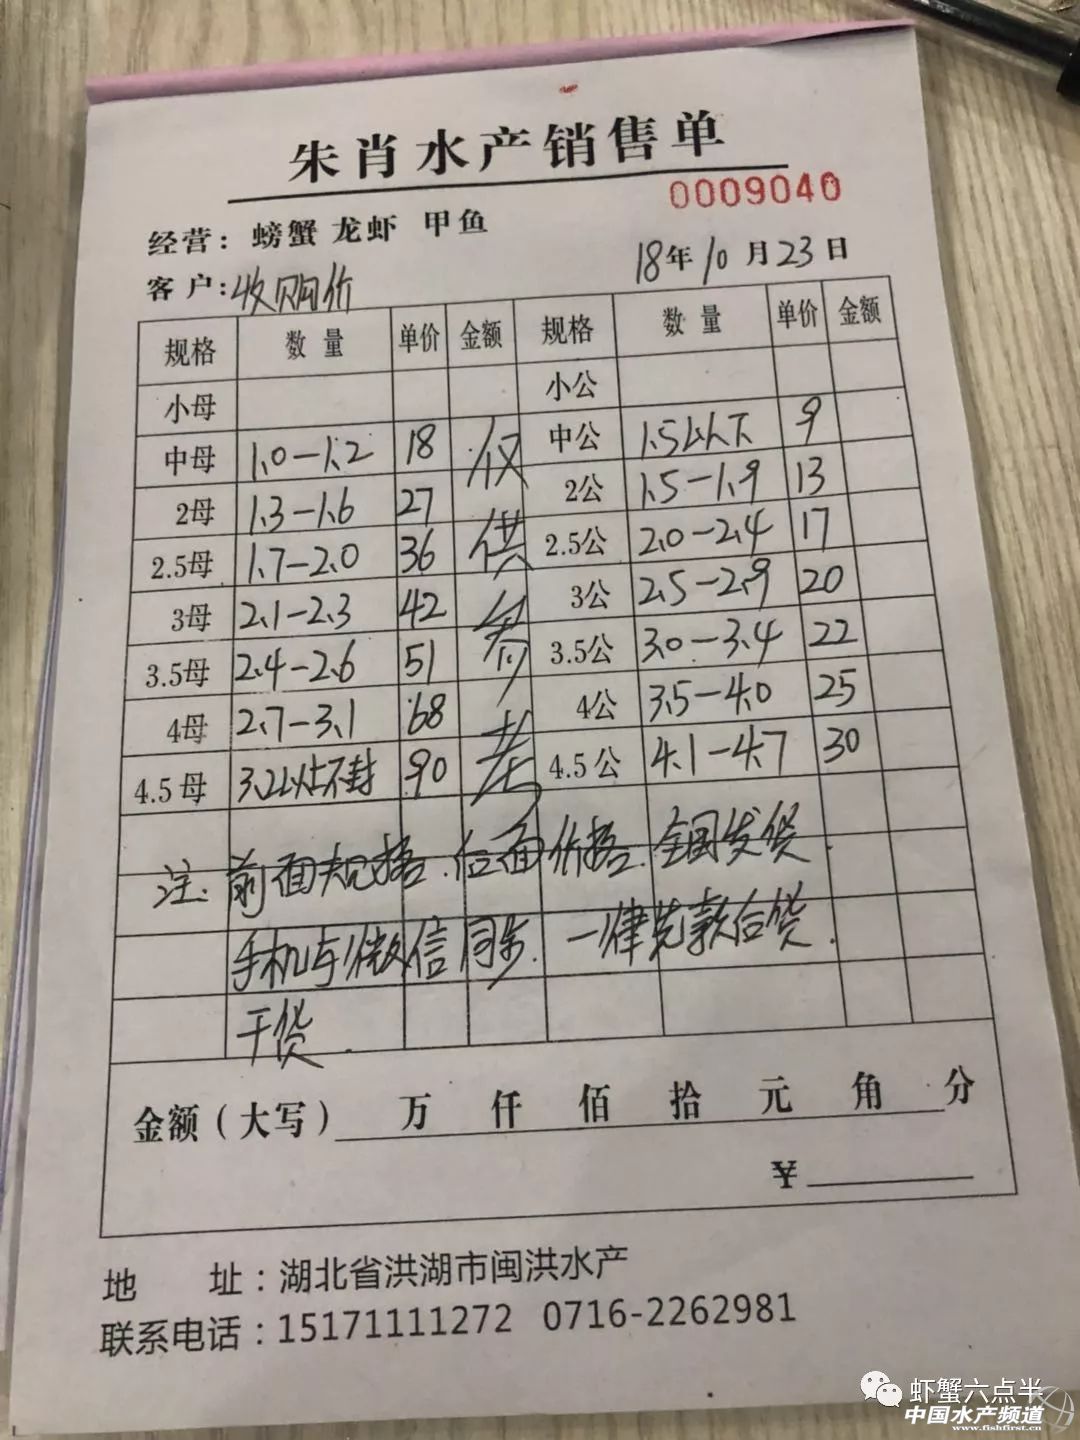 朱肖水产销售单
0009040
经营：螃蟹 龙虾 甲鱼
客户：收购价 18年10月23日
规格 数量 单价 金额 规格 数量 单价 金额
小母 小公
中母 1.0-1.2 18 仅 中公 1.5以下 9
2母 1.3-1.6 27 2公 1.5-1.9 13
2.5母 1.7-2.0 36 供 2.5公 2.0-2.4 17
3母 2.1-2.3 42 参 3公 2.5-2.9 20
3.5母 2.4-2.6 51 3.5公 3.0-3.4 22
4母 2.7-3.1 68 考 4公 3.5-4.0 25
4.5母 3.2以上不封 90 4.5公 4.1-4.7 30
注.前面规格.后面价格.全国发货.
手机与微信同步.一律先款后货.
干货.
金额（大写） 万 仟 佰 拾 元 角 分
¥
地 址：湖北省洪湖市闽洪水产
联系电话：15171111272 0716-2262981
虾蟹六点半
中国水产频道
www.fishfirst.cn